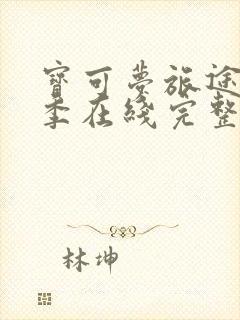 寶可夢旅途
季在綫完整
林坤